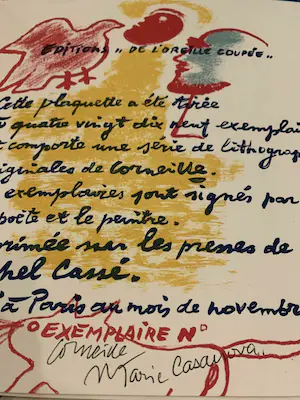 EDITIONS „ DE L'OREILLE COUPÉE „
Cette plaquette a été tirée
quatre vingt dix neuf exemplai
comporte une série de lithograp
iginales de Corneille.
exemplaires sont signés par
poète et le peintre.
primée sur les presses de
chel Cassé.
à Paris au mois de novembre
EXEMPLAIRE N°
Corneille
Marie Casanova